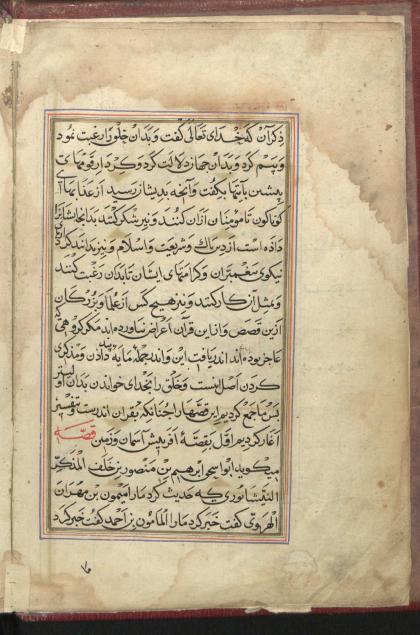 ذکر آن که خدای تعالی گفت و بدان خلق را رغبت نمود
و بیم کرد و بدان دلالت کرد و کردار قومهای
پیشین بآیتها بگفت و آنچه بدیشان رسید از عذابهای
کوناکون تا مومنان از آن کنند و نیز شکر کنند بدانچه ایشانرا
داده است از دین پاک و شریعت و اسلام و نیز بدانند که
نیکوی پیغمبران و کرامتهای ایشان تا بدان رغبت کنند
و بمثل آن کار کنند و نیز هیچ کس از علما و بزرگان
ازین قصص و از این قرآن اعراض نیاورده اند مگر گروهی که
عاجز بوده اند اندر یافت این و اندر جمله مایه دادن و مذکری
کردن اصل اینست و خلق را بخدای خواندن بدان اولیتر
پس ما جمع کردیم این قصها را چنانکه بقران اندرست و تفسیر
آغاز کردیم اول بقصهٔ آفرینش آسمان و زمین قصّه
میکوید ابو اسحق ابرهیم بن منصور بن خلف المذکّر
النیشابوری که حدیث کرد مارا میمون بن مهران
الهروی گفت خبر کرد مارا المأمون بن احمد گفت خبر کرد